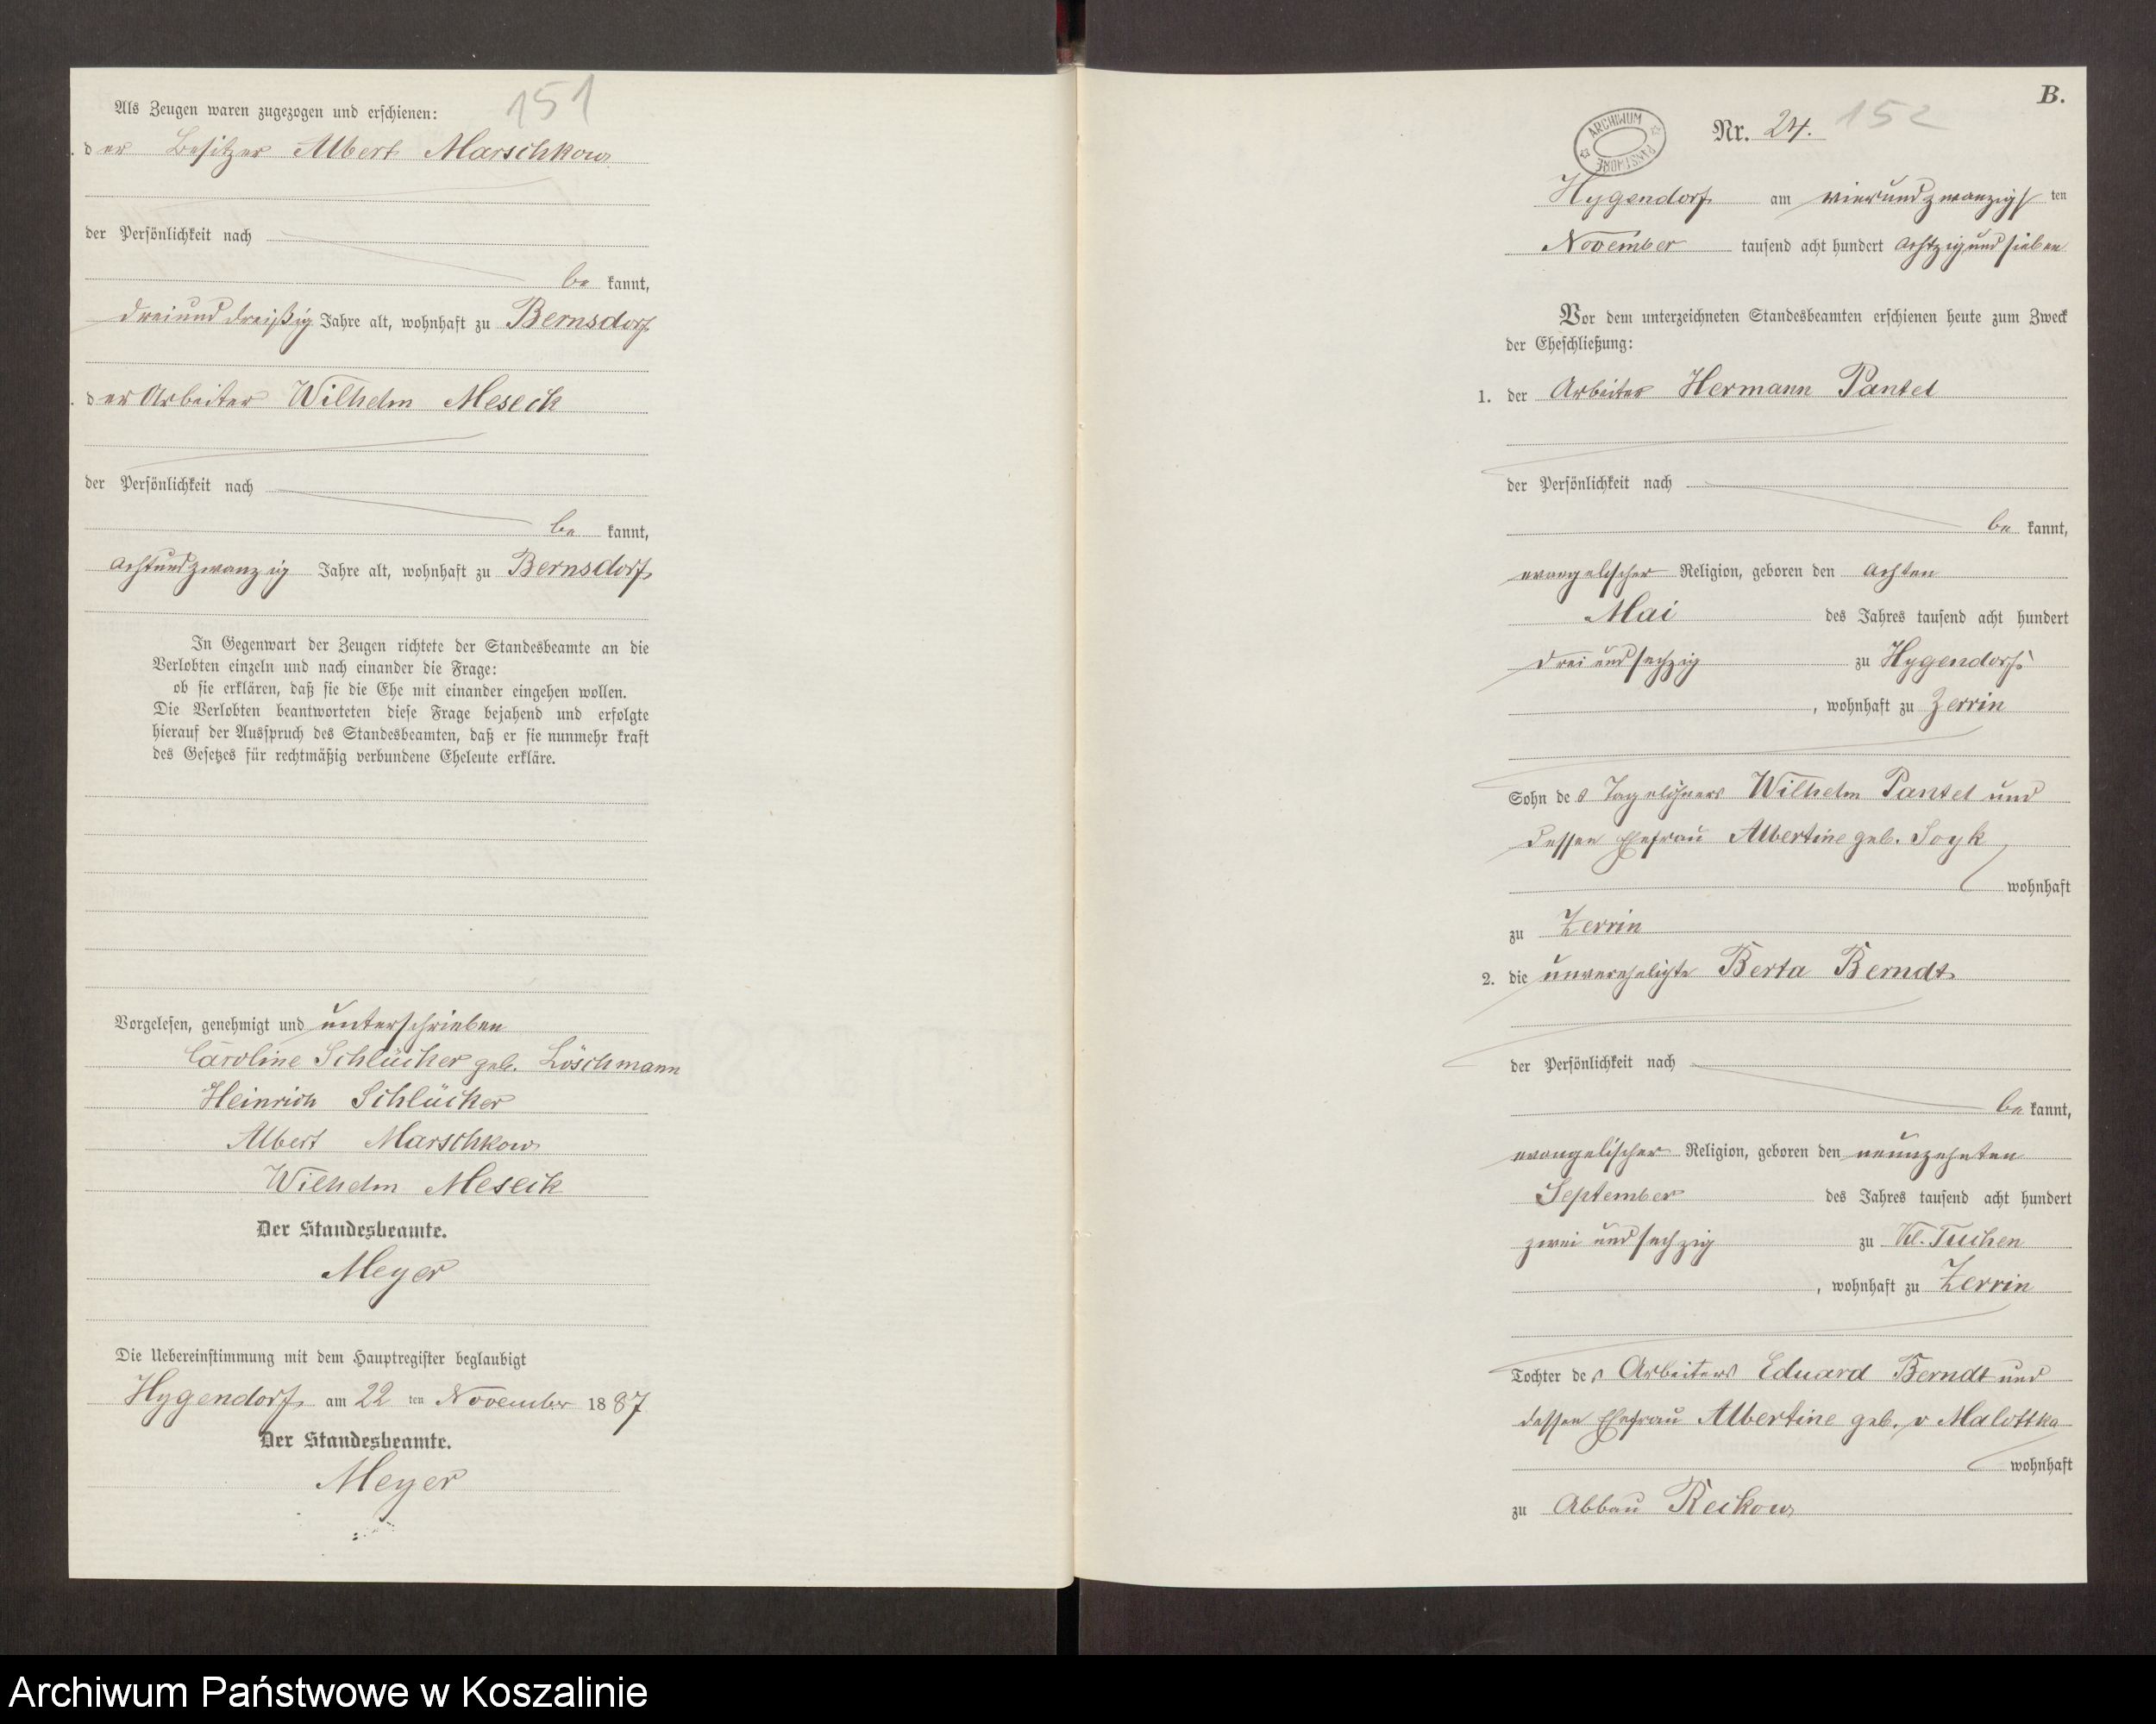 151
Als Zeugen waren zugezogen und erschienen:
der Besitzer Albert Marschkow
der Persönlichkeit nach
be kannt,
dreiunddreißig Jahre alt, wohnhaft zu Bernsdorf
der Arbeiter Wilhelm Meseck
der Persönlichkeit nach
be kannt,
achtundzwanzig Jahre alt, wohnhaft zu Bernsdorf
In Gegenwart der Zeugen richtete der Standesbeamte an die
Verlobten einzeln und nach einander die Frage:
ob sie erklären, daß sie die Ehe mit einander eingehen wollen.
Die Verlobten beantworteten diese Frage bejahend und erfolgte
hierauf der Ausspruch des Standesbeamten, daß er sie nunmehr kraft
des Gesetzes für rechtmäßig verbundene Eheleute erkläre.
Vorgelesen, genehmigt und unterschrieben
Caroline Schlücker geb. Löschmann
Heinrich Schlücker
Albert Marschkow
Wilhelm Meseck
Der Standesbeamte.
Meyer
Die Uebereinstimmung mit dem Hauptregister beglaubigt
Hygendorf am 22 ten November 1887
Der Standesbeamte.
Meyer
B.
ARCHIWUM PAŃSTWOWE
Nr. 24. 152
Hygendorf am vierundzwanzigsten
November tausend acht hundert achtzig und sieben
Vor dem unterzeichneten Standesbeamten erschienen heute zum Zweck
der Eheschließung:
1. der Arbeiter Hermann Pantel
der Persönlichkeit nach
be kannt,
evangelischer Religion, geboren den achten
Mai des Jahres tausend acht hundert
drei und sechzig zu Hygendorf
, wohnhaft zu Zerrin
Sohn des Tagelöhners Wilhelm Pantel und
dessen Ehefrau Albertine geb. Soyk
wohnhaft
zu Zerrin
2. die unverehelichte Berta Berndt
der Persönlichkeit nach
be kannt,
evangelischer Religion, geboren den neunzehnten
September des Jahres tausend acht hundert
zwei und sechzig zu Kl. Tuchen
, wohnhaft zu Zerrin
Tochter des Arbeiters Eduard Berndt und
dessen Ehefrau Albertine geb. v Malottka
wohnhaft
zu Abbau Reckow
Archiwum Państwowe w Koszalinie